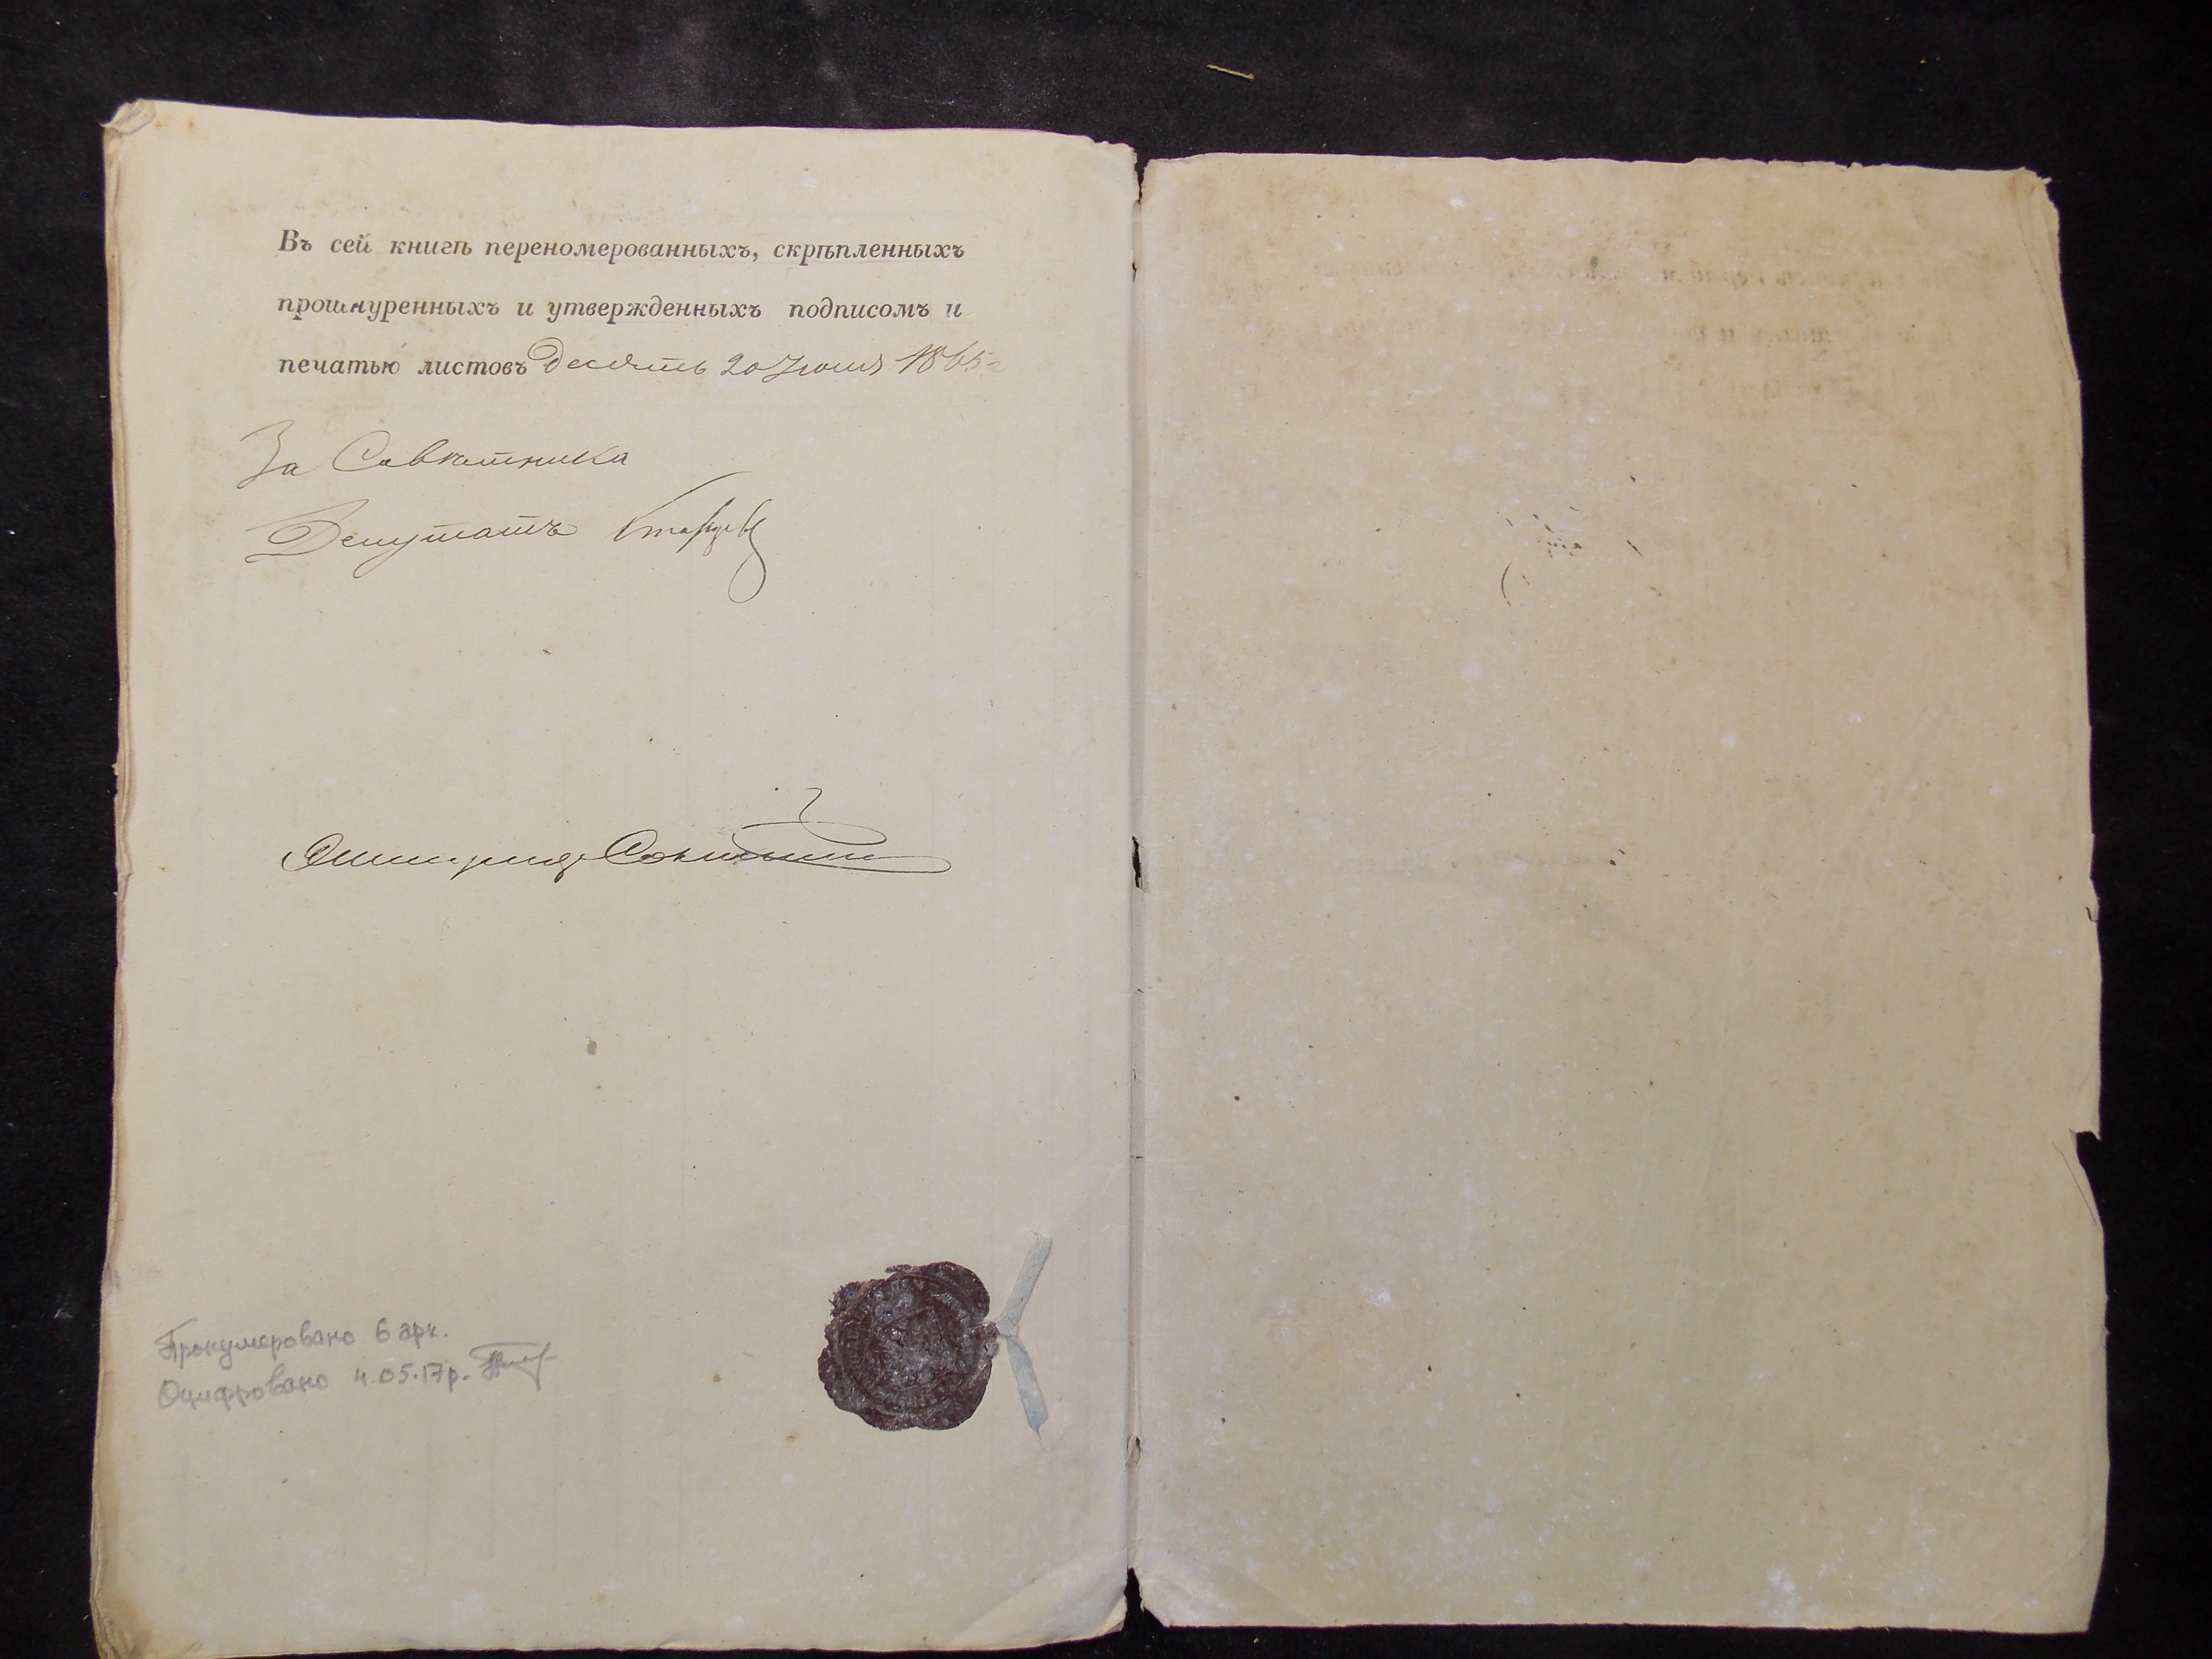 Въ сей книгѣ переномерованныхъ, скрѣпленныхъ
прошнуренныхъ и утвержденныхъ подписомъ и
печатью листовъ Десять 20 Июня 1865 г
За Совѣтника
Депутатъ
Пронумеровано 6 арк.
Оцифровано 4.05.17р.